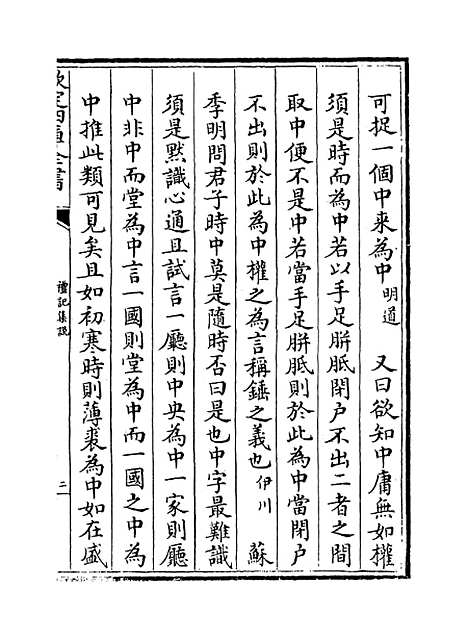 可捉一個中來為中明道　又曰欲知中庸無如權
須是時而為中若以手足胼胝閉户不出二者之間
取中便不是中若當手足胼胝則於此為中當閉户
不出則於此為中權之為言稱錘之義也伊川　蘇
季明問君子時中莫是隨時否曰是也中字最難識
須是黙識心通且試言一廳則中央為中一家則廳
中非中而堂為中言一國則堂為中而一國之中為
中推此類可見矣且如初寒時則薄裘為中如在盛
欽定四庫全書
禮記集説
三